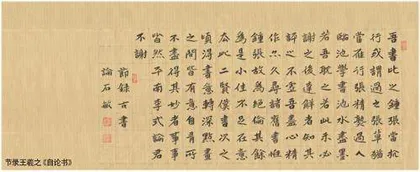 吾書比之鍾張當抗
行或謂過之張草猶
當雁行張精熟過人
臨池學書池水盡墨
若吾耽之若此未必
謝之後達解者知其
評之不虛吾盡心精
作亦久尋諸舊書惟
鍾張故為絕倫其餘
為是小佳不足在意
去此二賢僕書次之
頃得書意轉深點畫
之間皆有意自有言所
不盡得其妙者事事
皆然平南李式論君
不謝
節錄古書
論石敏
节录王羲之《自论书》